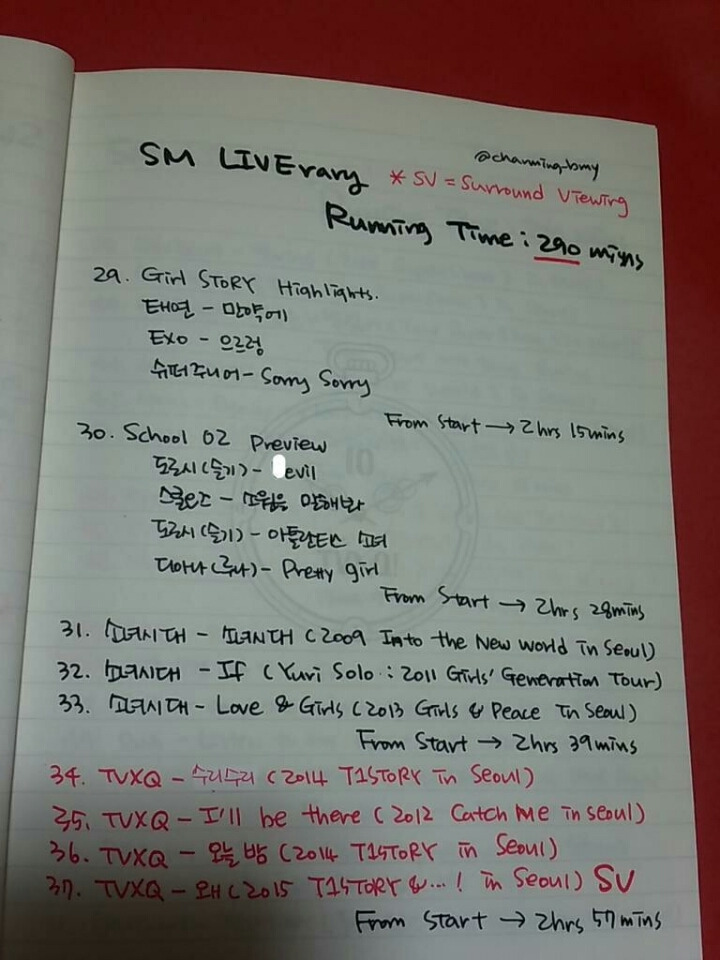 @charming_bmy
SM LIVErary * SV = Surround Viewing
Running Time : 290 mins
29. Girl STORY Highlights.
태연 - 만약에
EXO - 으르렁
슈퍼주니어 - Sorry Sorry
From Start → 2hrs 15mins
30. School OZ Preview
도로시(슬기) - evil
스쿨오즈 - 소원을 말해봐
도로시(슬기) - 아틀란티스 소녀
디아나(루나) - Pretty girl
From Start → 2hrs 28mins
31. 소녀시대 - 소녀시대 (2009 Into the New world in Seoul)
32. 소녀시대 - If (Yuri Solo : 2011 Girls' Generation Tour)
33. 소녀시대 - Love & Girls (2013 Girls & Peace in Seoul)
From Start → 2hrs 39mins
34. TVXQ - 수리수리 (2014 T1STORY in Seoul)
35. TVXQ - I'll be there (2012 Catch Me in seoul)
36. TVXQ - 오늘밤 (2014 T1STORY in Seoul)
37. TVXQ - 왜 (2015 T1STORY &...! in Seoul) SV
From Start → 2hrs 57mins